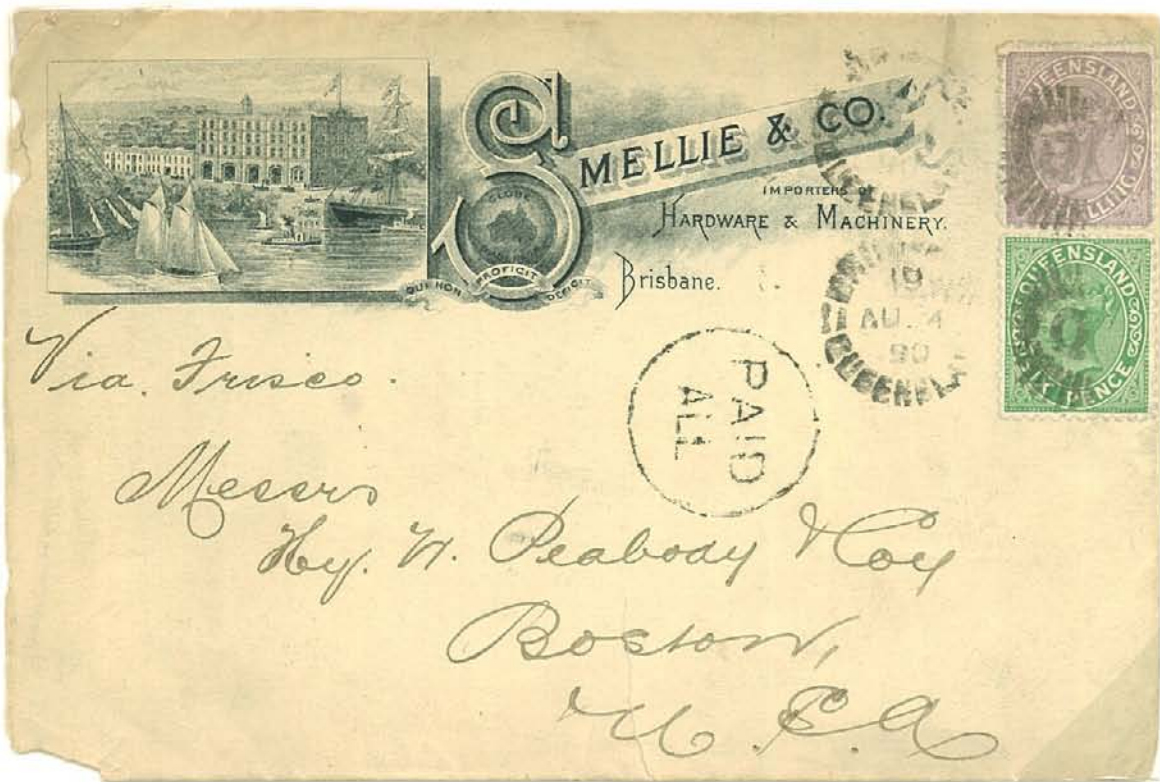 SMELLIE & CO.
IMPORTERS OF
HARDWARE & MACHINERY.
Brisbane.
GLOBE
QUI NON PROFICIT DEFICIT
QUEENSLAND
ONE SHILLING
QUEENSLAND
SIX PENCE
BRISBANE
19
AU 4
90
QUEENSLAND
PAID
ALL
Via Frisco.
Messrs
Hy. W. Peabody & Coy
Boston,
U.S.A